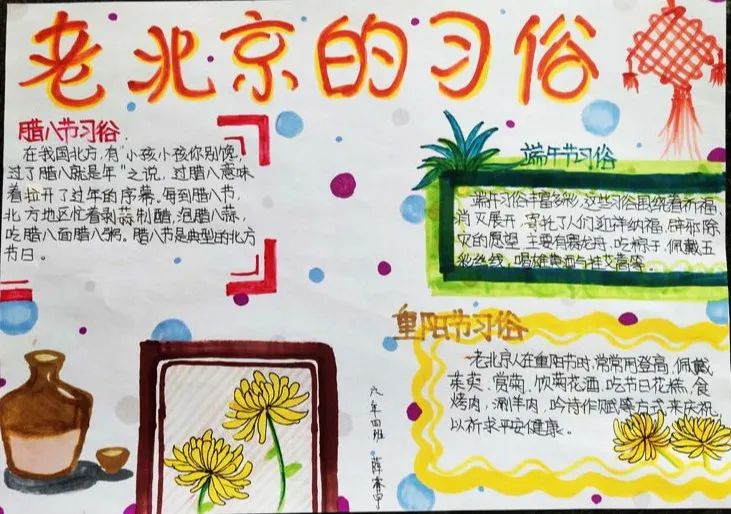 老北京的习俗
腊八节习俗
在我国北方,有"小孩小孩你别馋,
过了腊八就是年"之说,过腊八意味
着拉开了过年的序幕。每到腊八节,
北方地区忙着剥蒜制醋,泡腊八蒜,
吃腊八面腊八粥。腊八节是典型的北方
节日。
端午节习俗
端午习俗丰富多彩,这些习俗围绕着祈福、
消灾展开,寄托了人们迎祥纳福、辟邪除
灾的愿望。主要有赛龙舟、吃粽子、佩戴五
彩丝线、喝雄黄酒与挂艾蒿等。
重阳节习俗
老北京人在重阳节时,常常用登高、佩戴
茱萸、赏菊、饮菊花酒、吃节日花糕、食
烤肉、涮羊肉、吟诗作赋等方式来庆祝,
以祈求平安健康。
六年四班
薛